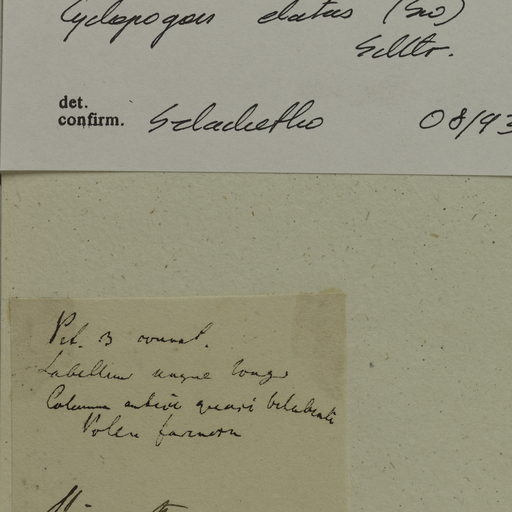 Cyclopogon elatus (Sw)
Schltr.
det.
confirm. Szlachetko 08/93
Pet. 3 connat.
Labellum ungue longo
Columna antice quasi bilabiata
Polen farinosum